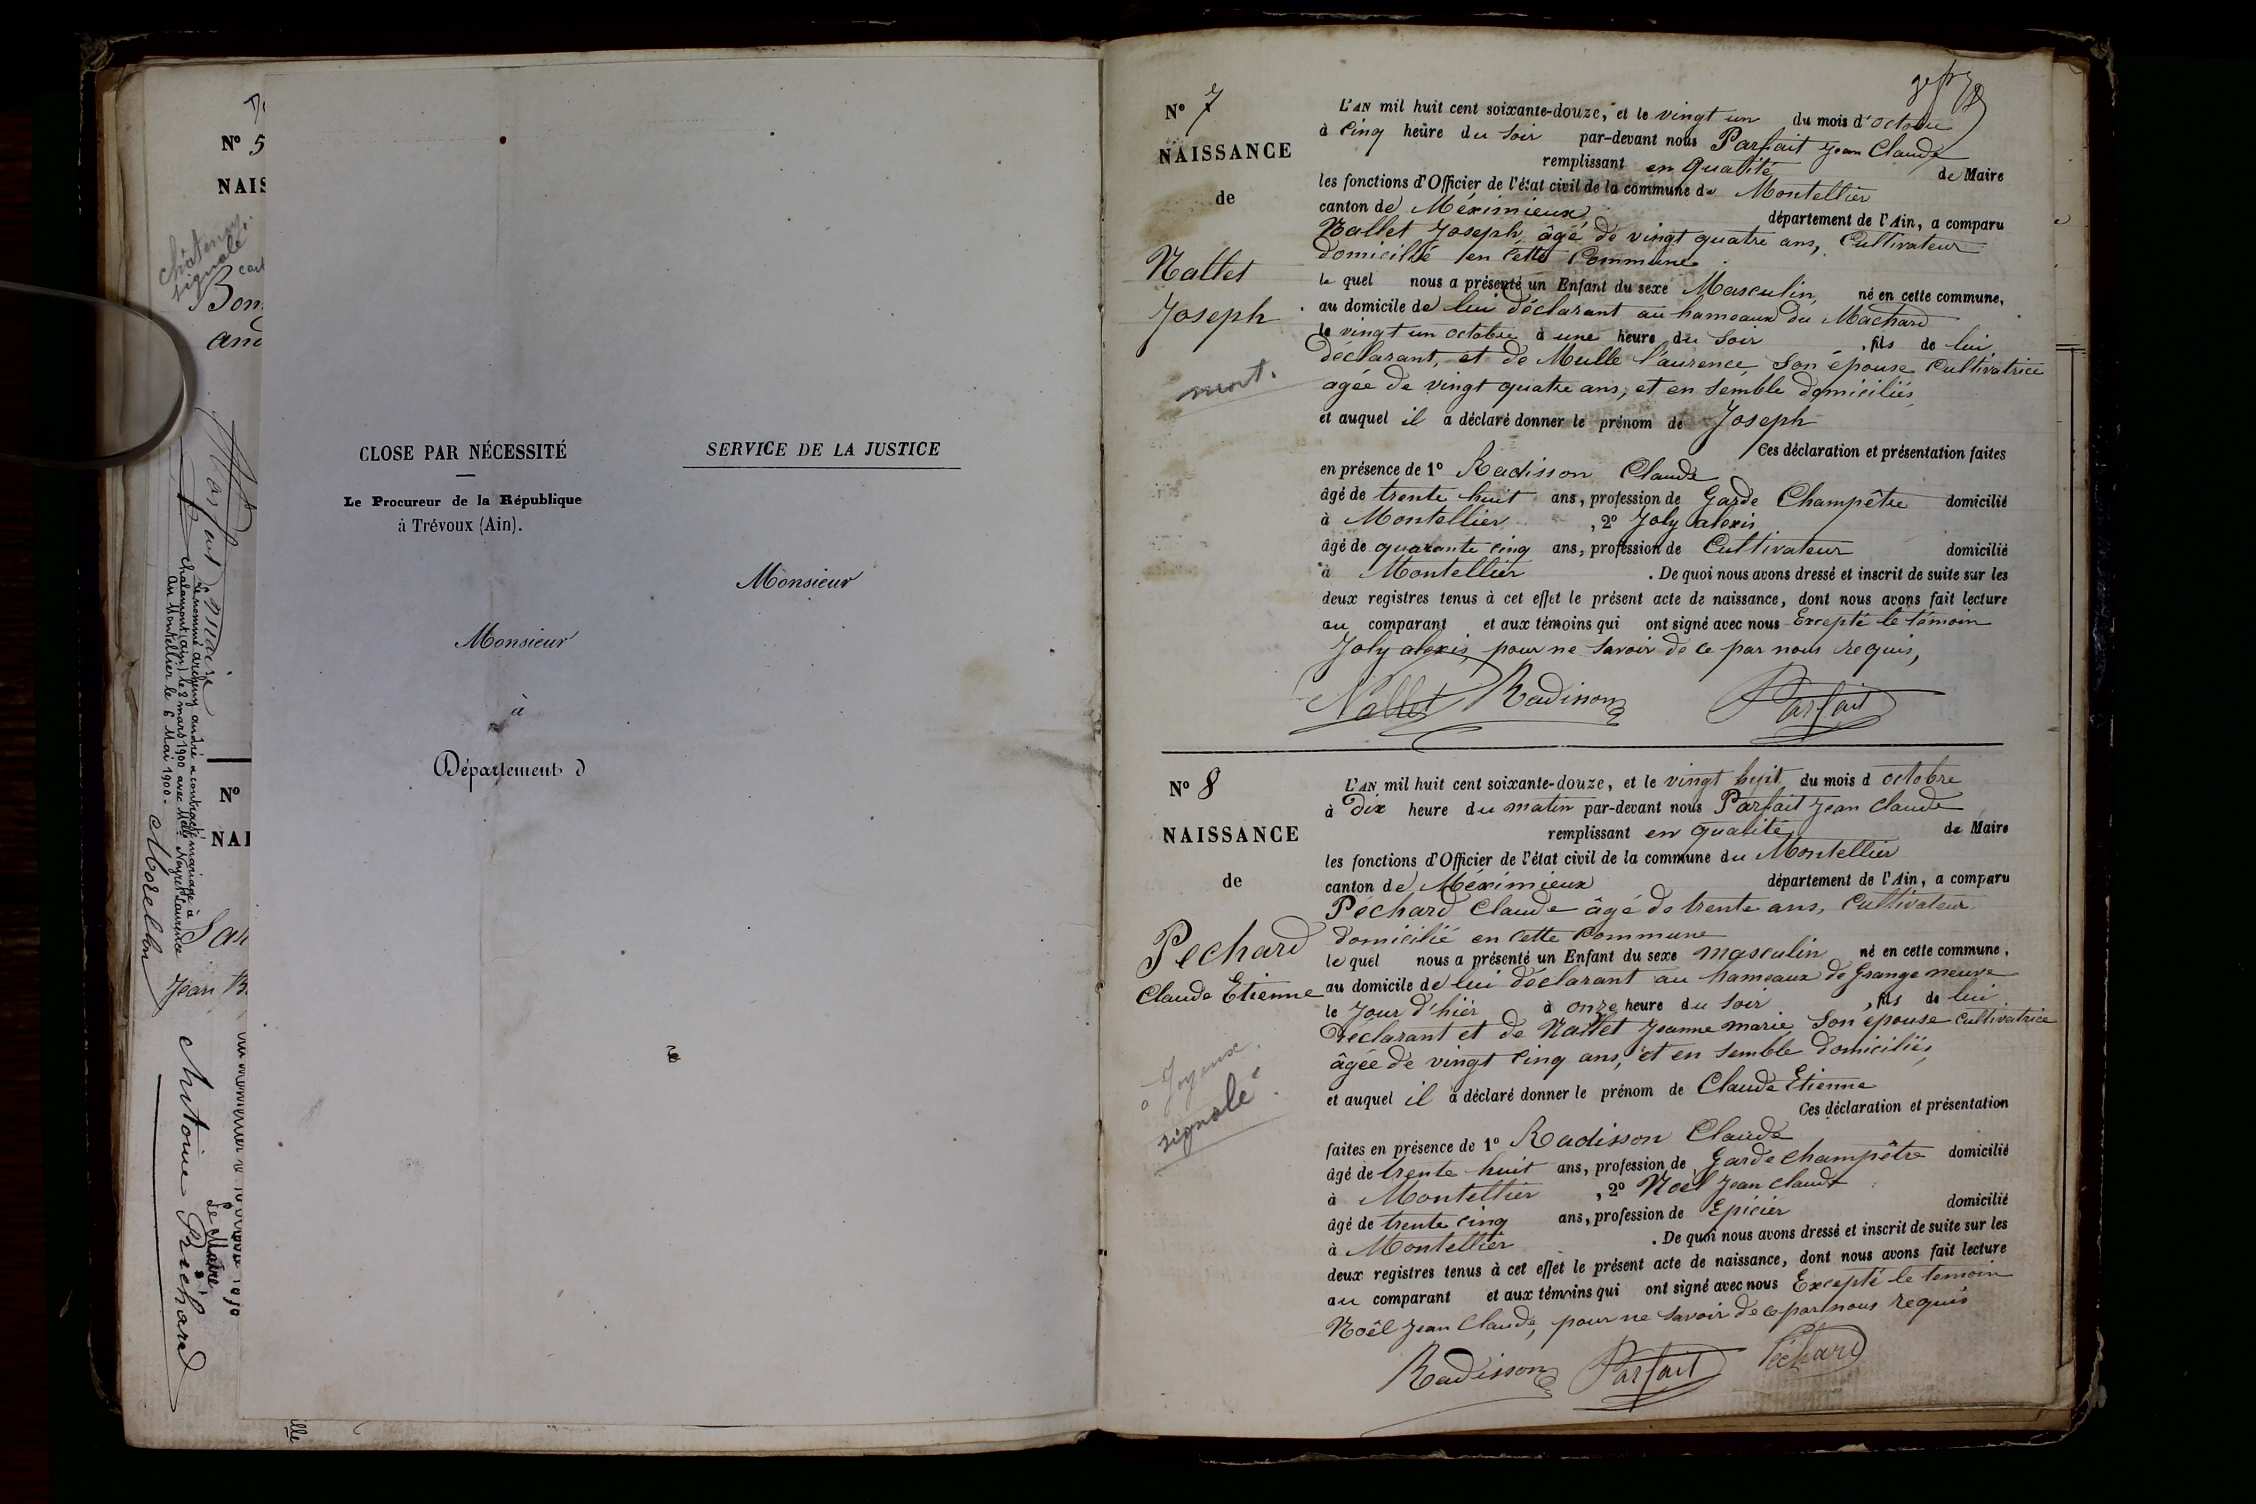 N° 5
NAIS
signalé.
Bon
and
Parfait
Maire
Le nommé archeny andré a contracté mariage à
chalamont (ain) le 8 mars 1900 avec Mlle Neyret Laurence
au Montellier le 6 Mai 1900.
Morellon
N°
NAI
Jean B
Antoine Préchard
le Maire
CLOSE PAR NÉCESSITÉ
Le Procureur de la République
à Trévoux (Ain).
Monsieur
à
Département d
SERVICE DE LA JUSTICE
Monsieur
N° 7
NAISSANCE
de
Nallet
Joseph
mort.
L'AN mil huit cent soixante-douze, et le vingt un du mois d'octobre
à cinq heure du soir par-devant nous Parfait Jean Claude
remplissant en qualité de Maire
les fonctions d'Officier de l'état civil de la commune de Montellier
canton de Méximieux département de l'Ain, a comparu
Nallet Joseph âgé de vingt quatre ans, Cultivateur
domicilié en cette Commune
le quel nous a présenté un Enfant du sexe Masculin, né en cette commune,
au domicile de lui déclarant au hameaux du Machard
le vingt un octobre à une heure du soir, fils de lui
déclarant, et de Mulle l'aurence son épouse Cultivatrice
agée de vingt quatre ans, et en semble domiciliés
et auquel il a déclaré donner le prénom de Joseph
Ces déclaration et présentation faites
en présence de 1° Radisson Claude
âgé de trente huit ans, profession de Garde Champêtre domicilié
à Montellier, 2° Joly alexis
âgé de quarante cinq ans, profession de Cultivateur domicilié
à Montellier. De quoi nous avons dressé et inscrit de suite sur les
deux registres tenus à cet effet le présent acte de naissance, dont nous avons fait lecture
au comparant et aux témoins qui ont signé avec nous Excepté le témoin
Joly alexis, pour ne savoir de ce par nous requis,
Nallet Radisson Parfait
N° 8
NAISSANCE
de
Pechard
Claude Etienne
Joyeux
signalé.
L'AN mil huit cent soixante-douze, et le vingt huit du mois d octobre
à Dix heure du matin par-devant nous Parfait Jean Claude
remplissant en qualité de Maire
les fonctions d'Officier de l'état civil de la commune du Montellier
canton de Méximieux département de l'Ain, a comparu
Péchard Claude âgé de trente ans, Cultivateur
domicilié en cette Commune
le quel nous a présenté un Enfant du sexe masculin né en cette commune,
au domicile de lui déclarant au hameaux de Grange neuve
le Jour d'hier à onze heure du soir, fils de lui
déclarant et de Nallet Jeanne marie son épouse Cultivatrice
âgée de vingt cinq ans, et en semble domiciliés
et auquel il a déclaré donner le prénom de Claude Etienne
Ces déclaration et présentation
faites en présence de 1° Radisson Claude
âgé de trente huit ans, profession de Garde champêtre domicilié
à Montellier, 2° Noel Jean Claude
âgé de trente cinq ans, profession de Epicier domicilié
à Montellier. De quoi nous avons dressé et inscrit de suite sur les
deux registres tenus à cet effet le présent acte de naissance, dont nous avons fait lecture
au comparant et aux témoins qui ont signé avec nous Excepté le temoin
Noël Jean Claude, pour ne savoir de ce par nous requis
Radisson Parfait Péchard